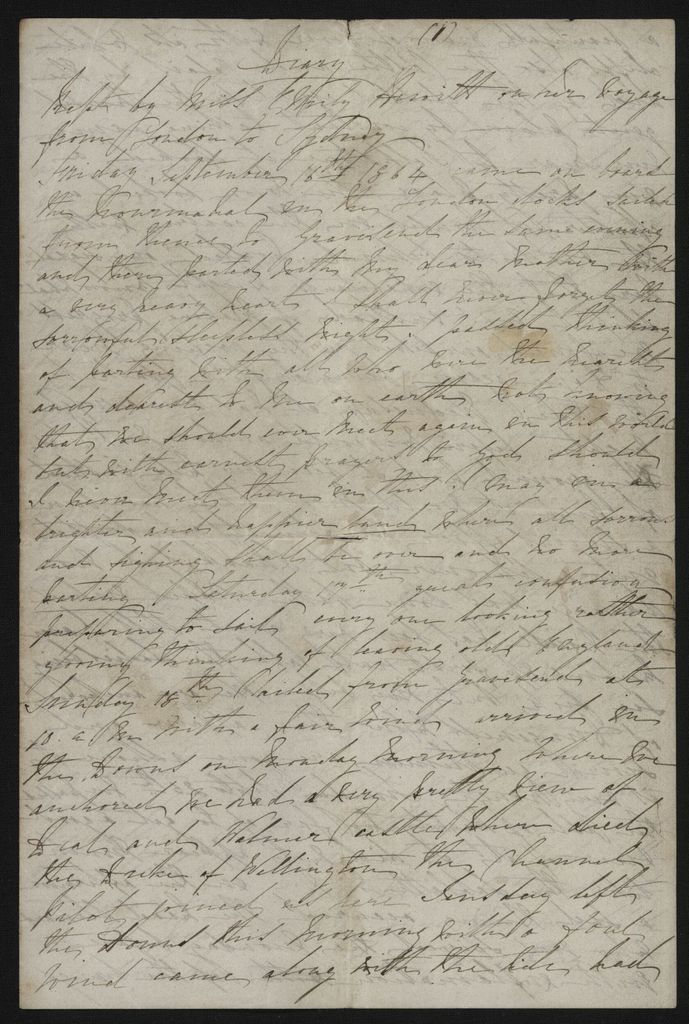 (1)
Diary
Kept by Miss Emily Hewitt on her Voyage
from London to Sydney
Friday September 16th 1864 came on board
the Nourmahal in the London docks sailed
from thence to Gravesend the same evening
and there parted with my dear Mother with
a very heavy heart I shall never forget the
sorrowful sleepless night I passed thinking
of parting with all who were the nearest
and dearest to me on earth not knowing
that we should ever meet again in this world
but with earnest prayers to God should
I never meet them in this I may in a
brighter and happier land where all sorrow
and sighing shall be over and no more
parting Saturday 17th great confusion
preparing to sail every one looking rather
gloomy thinking of leaving old England
Sunday 18th Sailed from Gravesend at
10 a m with a fair wind arrived in
the Downs on Monday morning where we
anchored we had a very pretty view of
Deal and Walmer Castle where died
the Duke of Wellington the Channel
Pilot joined us here Tuesday left
the Downs this morning with a foul
wind came along with the tide had